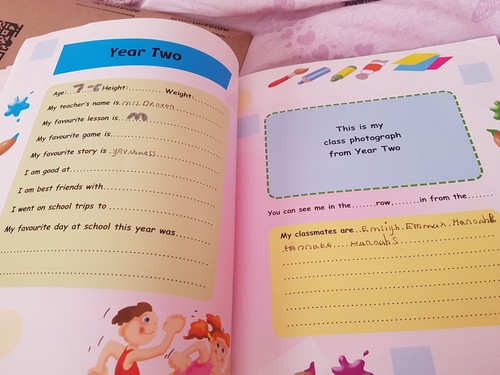 Year Two
Age: 7-8 Height: Weight:
My teacher's name is
My favourite lesson is m
My favourite game is
My favourite story is
I am good at
I am best friends with
I went on school trips to
My favourite day at school this year was
This is my
class photograph
from Year Two
You can see me in the row, in from the
My classmates are Emliyh. Emmah. Hannah
Hannaba Hannahs